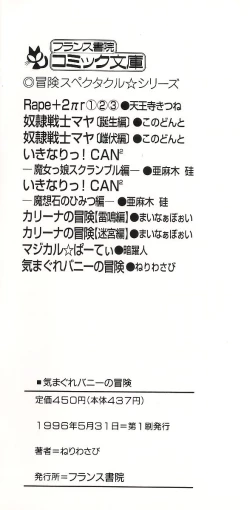 フランス書院
コミック文庫
◎冒険スペクタクル☆シリーズ
Rape+2πr①②③●天王寺きつね
奴隷戦士マヤ【誕生編】●このどんと
奴隷戦士マヤ【雌伏編】●このどんと
いきなりっ！CAN²
―魔女っ娘スクランブル編―●亜麻木 硅
いきなりっ！CAN²
―魔想石のひみつ編―●亜麻木 硅
カリーナの冒険【雷鳴編】●まいなぁぼぉい
カリーナの冒険【迷宮編】●まいなぁぼぉい
マジカル☆ぱーてぃ●暗躍人
気まぐれバニーの冒険●ねりわさび
■気まぐれバニーの冒険
定価450円(本体437円)
1996年5月31日=第1刷発行
著者=ねりわさび
発行所=フランス書院